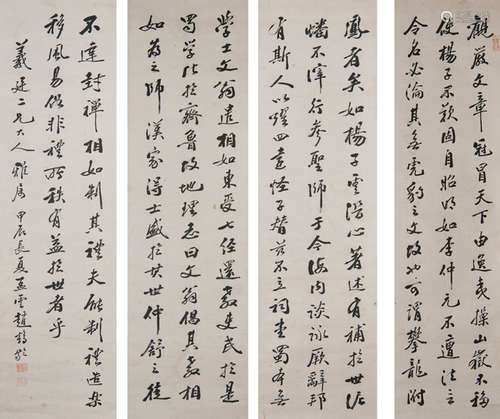 觀嚴文章冠冒天下由逸夷操山嶽不移
使楊子不歎固自昭明如李仲元不遭法言
令名必淪其無虎豹之文故也可謂攀龍附
鳳者矣如楊子雲潛心著述有補於世泥
蟠不滓行參聖師于今海內談詠厥辭邦
有斯人以耀四遠怪子替茲不立祠堂蜀本無
學士文翁遣相如東受七經還教吏民於是
蜀學比於齊魯故地理志曰文翁倡其教相
如為之師漢家得士盛於其世仲舒之徒
不達封禪相如制其禮夫能制禮造樂
移風易俗非禮所秩有益於世者乎
羲廷二兄大人雅屬 甲辰長夏孟雲趙鶴